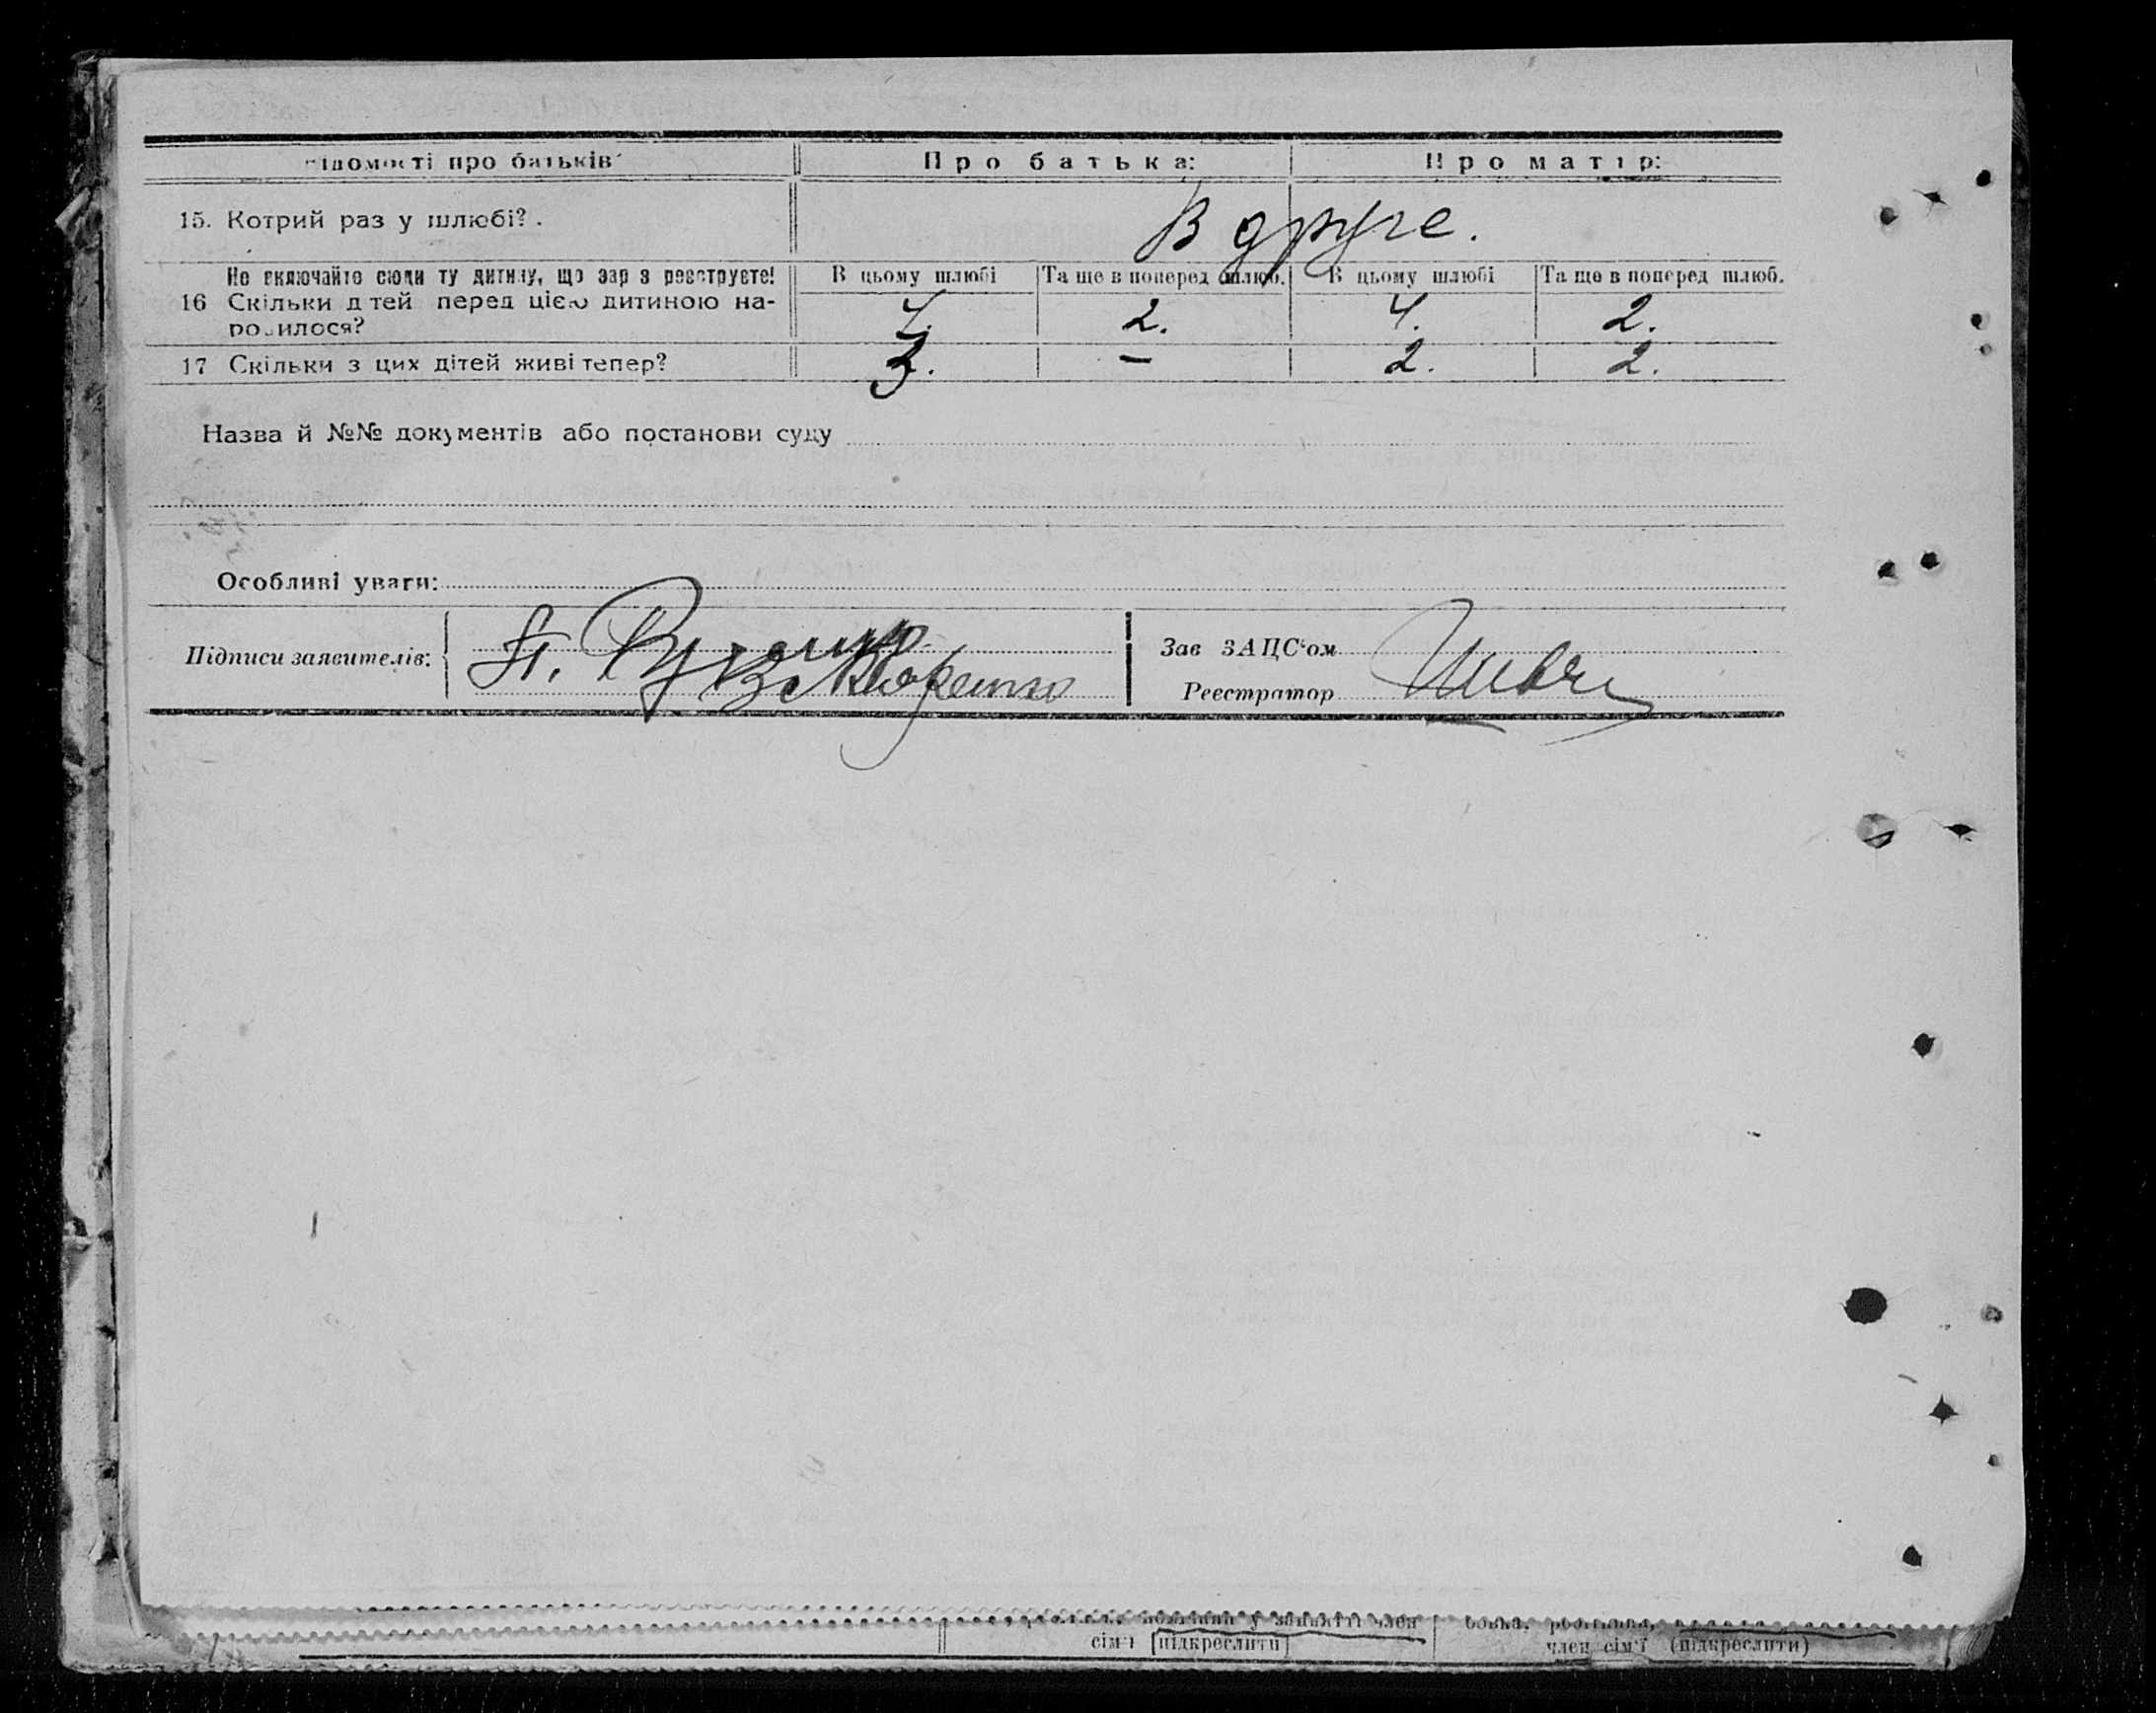 Відомості про батьків
Про батька:
Про матір:
15. Котрий раз у шлюбі?.
В друге.
Не включайте сюди ту дитину, що зараз реєструєте!
В цьому шлюбі
Та ще в поперед шлюб.
В цьому шлюбі
Та ще в поперед шлюб.
16 Скільки дітей перед цією дитиною на-
родилося?
4.
2.
4.
2.
17 Скільки з цих дітей живі тепер?
3.
–
2.
2.
Назва й №№ документів або постанови суду
Особливі уваги:
Підписи заявителів:
Зав ЗАЦС‘ом
Реєстратор
член
сім'ї (підкреслити)
член сім'ї (підкреслити)